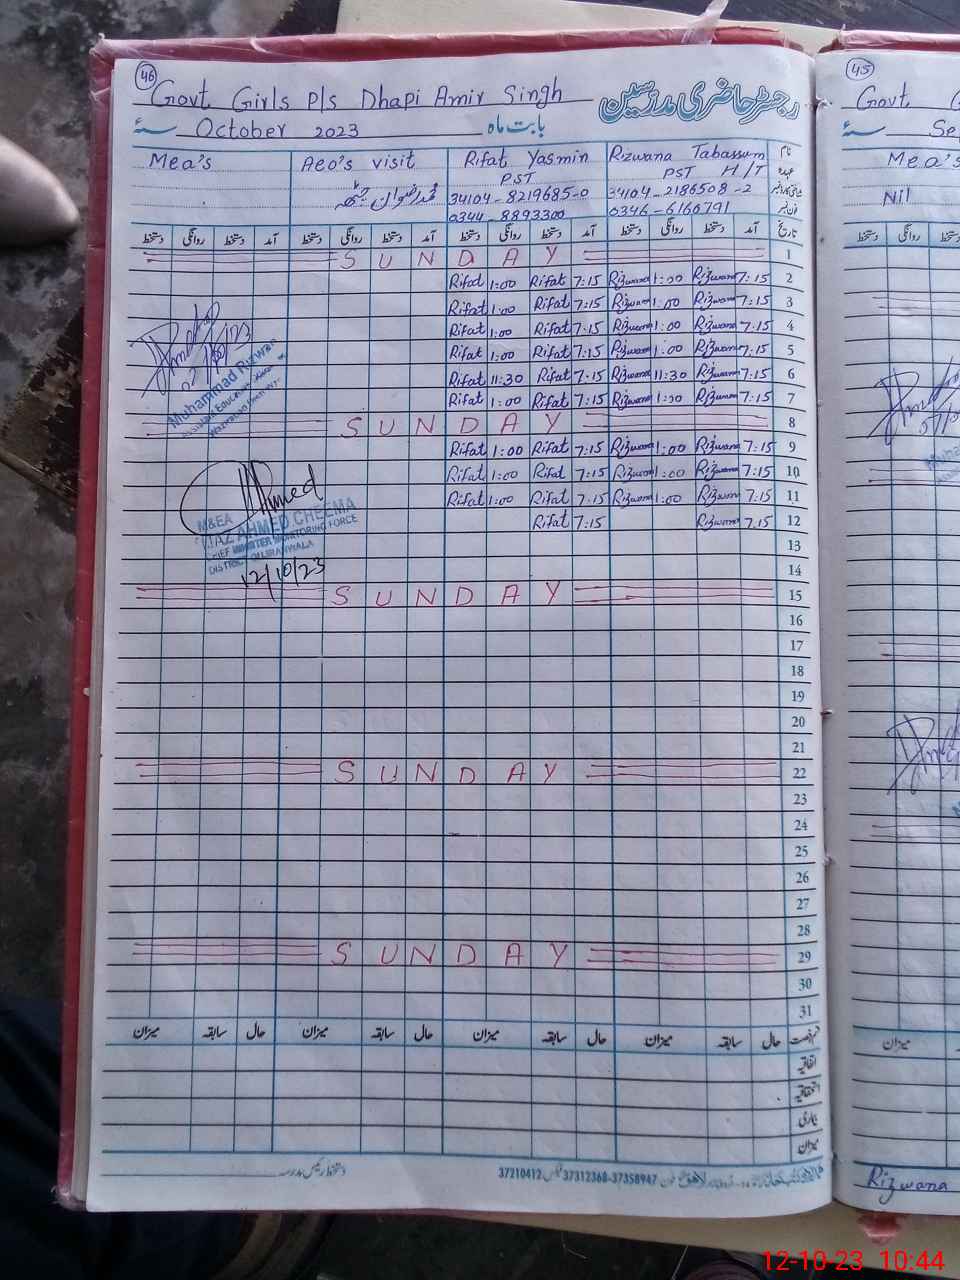 46
Govt. Girls P/s Dhapi Amir Singh
رجسٹر حاضری مدرسین
October 2023
بابت ماہ
سنہ
Mea's Aeo's visit Rifat Yasmin Rizwana Tabassum نام
PST PST H/T عہدہ
34104-8219685-0 34104-2186508-2
0344-8893300 0346-6160791
دستخط روانگی دستخط آمد دستخط روانگی دستخط آمد دستخط روانگی دستخط آمد دستخط روانگی دستخط آمد تاریخ
SUNDAY 1
Rifat 1:00 Rifat 7:15 Rizwana 1:00 Rizwana 7:15 2
Rifat 1:00 Rifat 7:15 Rizwana 1:00 Rizwana 7:15 3
Rifat 1:00 Rifat 7:15 Rizwana 1:00 Rizwana 7:15 4
Rifat 1:00 Rifat 7:15 Rizwana 1:00 Rizwana 7:15 5
Rifat 11:30 Rifat 7:15 Rizwana 11:30 Rizwana 7:15 6
Rifat 1:00 Rifat 7:15 Rizwana 1:00 Rizwana 7:15 7
Muhammad Rizwan
SUNDAY 8
Rifat 1:00 Rifat 7:15 Rizwana 1:00 Rizwana 7:15 9
Rifat 1:00 Rifat 7:15 Rizwana 1:00 Rizwana 7:15 10
Rifat 1:00 Rifat 7:15 Rizwana 1:00 Rizwana 7:15 11
Rifat 7:15 Rizwana 7:15 12
Ahmed
M&EA
AHMED CHEEMA
CHIEF MINISTER MONITORING FORCE
DISTRICT GUJRANWALA
12/10/23
13
14
SUNDAY 15
16
17
18
19
20
21
SUNDAY 22
23
24
25
26
27
28
SUNDAY 29
30
31
میزان سابقہ حال میزان سابقہ حال میزان سابقہ حال میزان سابقہ حال قسم رخصت
اتفاقیہ
استحقاقیہ
بیماری
میزان
37210412 37312368-37358947
45
Govt.
سنہ
Se
Mea's
Nil
دستخط روانگی
میزان
Rizwana
12-10-23 10:44